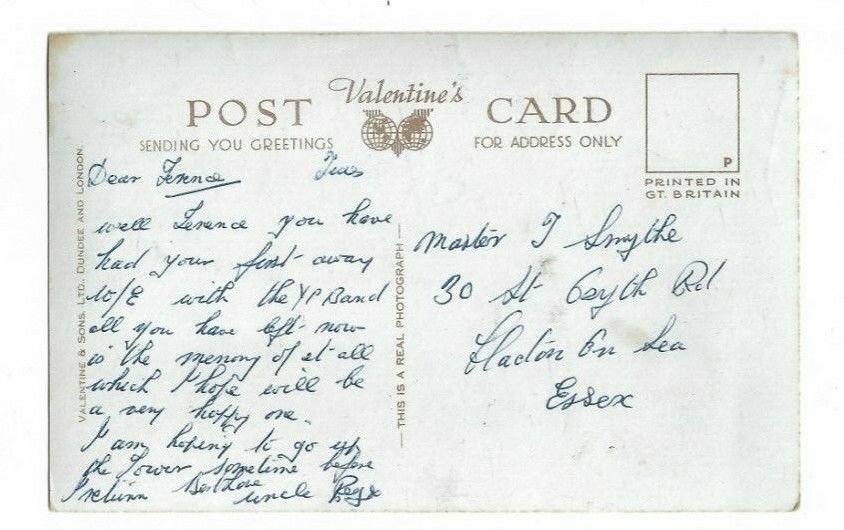 POST Valentine's CARD
SENDING YOU GREETINGS
FOR ADDRESS ONLY
P
PRINTED IN
GT. BRITAIN
VALENTINE & SONS. LTD. DUNDEE AND LONDON.
Dear Terence Tues
well Terence you have
had your first away
W/E with the YP Band
all you have left now
is the memory of it all
which I hope will be
a very happy one.
I am hoping to go up
the Tower sometime before
I return Best Love
uncle Reg x
THIS IS A REAL PHOTOGRAPH
Master T Smythe
30 St Osyth Rd
Clacton On Sea
Essex